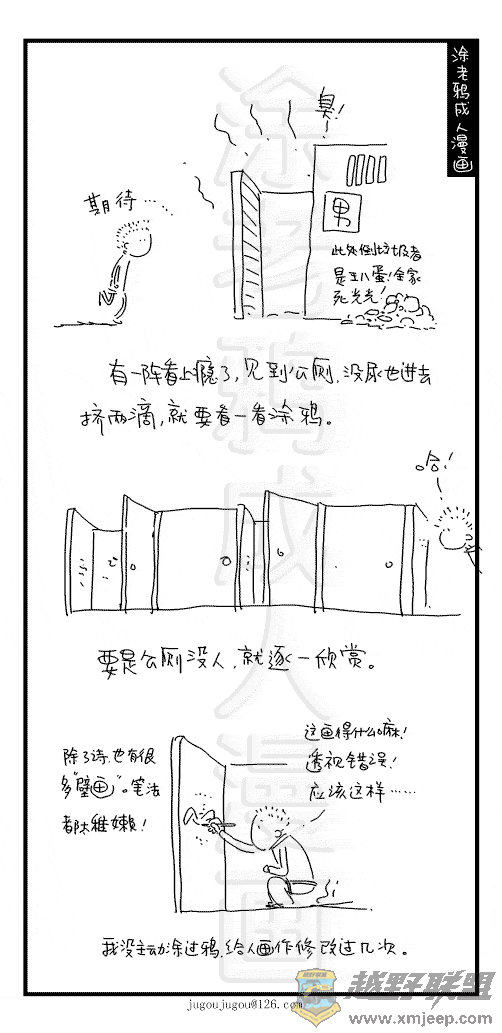 涂老鸦成人漫画
臭！
期待……
男
此处倒垃圾者
是王八蛋！全家
死光光！
有一阵看上瘾了，见到公厕，没尿也进去
挤两滴，就要看一看涂鸦。
哈！
要是公厕没人，就逐一欣赏。
除了诗，也有很
多“壁画”。笔法
都太稚嫩！
这画得什么嘛！
透视错误！
应该这样……
我没主动涂过鸦，给人画作修改过几次。
jugoujugou@126.com
越野联盟
www.xmjeep.com
涂老鸦成人漫画